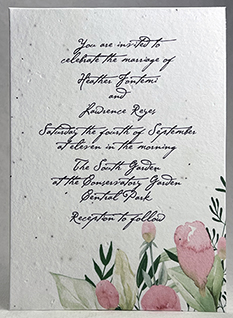 You are invited to
celebrate the marriage of
Heather Fontemi
and
Lawrence Reyes
Saturday the fourth of September
at eleven in the morning
The South Garden
at the Conservatory Garden
Central Park
Reception to follow